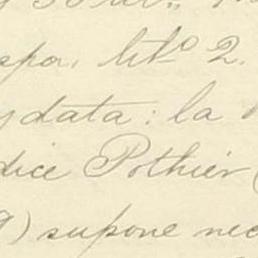 spor, lit.º 2.
y data: la
dice Pothier (
9) supone nec